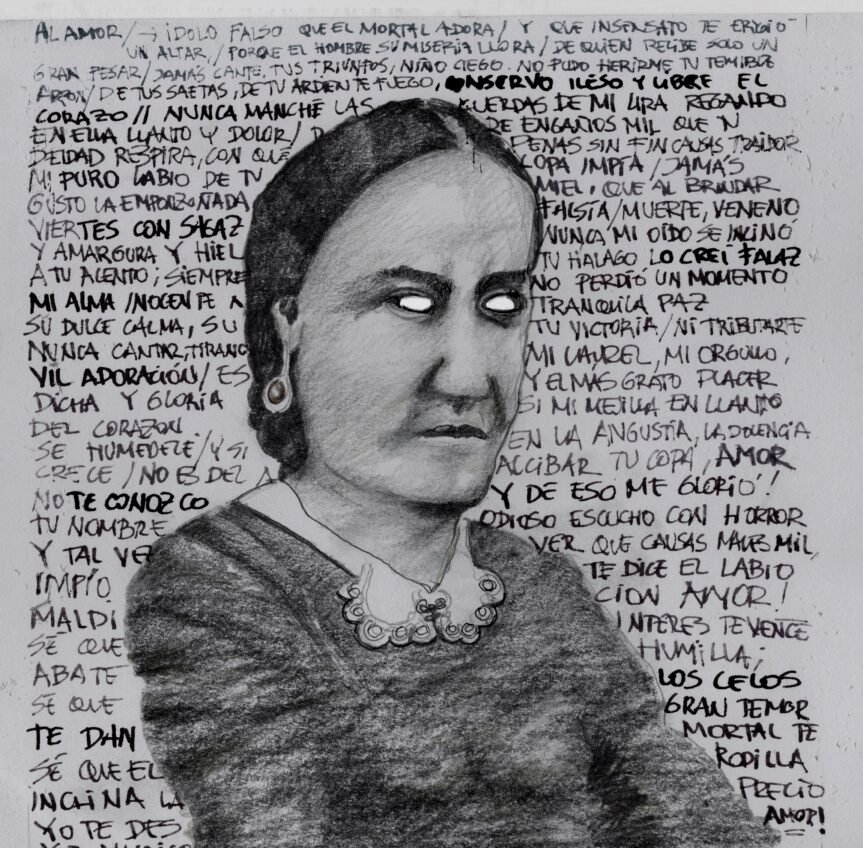 AL AMOR /→ IDOLO FALSO QUE EL MORTAL ADORA / Y QUE INSENSATO TE ERIGIÓ
UN ALTAR, / PORQUE EL HOMBRE SU MISERIA LLORA / DE QUIEN RECIBE SOLO UN
GRAN PESAR / JAMÁS CANTE, TUS TRIUNFOS, NIÑO CIEGO. NO PUDO HERIRME TU TEMIBLE
ARPON / DE TUS SAETAS, DE TU ARDIENTE FUEGO, CONSERVO ILESO Y LIBRE EL
CORAZO // NUNCA MANCHÉ LAS CUERDAS DE MI LIRA REGANDO
EN ELLA LLANTO Y DOLOR / DE ENGAÑOS MIL QUE N
DEIDAD RESPIRA, CON QUÉ PENAS SIN FIN CAUSAS TRAIDOR
MI PURO LABIO DE TU COPA IMPÍA / JAMÁS
GUSTO LA EMPONZOÑADA MIEL, QUE AL BRINDAR
VIERTES CON SAGAZ FALSÍA / MUERTE, VENENO
Y AMARGURA Y HIEL NUNCA MI OIDO SE INCLINÓ
A TU ACENTO; SIEMPRE TU HALAGO LO CREI FALAZ
MI ALMA INOCENTE NO PERDIÓ UN MOMENTO
SU DULCE CALMA, SU TRANQUILA PAZ
NUNCA CANTAR, TIRANO TU VICTORIA / NI TRIBUTARTE
VIL ADORACIÓN / ES MI LAUREL, MI ORGULLO,
DICHA Y GLORIA Y EL MAS GRATO PLACER
DEL CORAZON. SI MI MEJILLA EN LLANTO
SE HUMEDECE / Y SI EN LA ANGUSTIA, LA DOLENCIA
CRECE / NO ES DEL ACCIBAR TU COPA, AMOR
NO TE CONOZCO Y DE ESO ME GLORIÓ!
TU NOMBRE ODIOSO ESCUCHO CON HORROR
Y TAL VE VER QUE CAUSAS MALES MIL,
IMPÍO TE DICE EL LABIO
MALDI CION AMOR!
SÉ QUE INTERES TE VENCE
ABATE HUMILLA;
SÉ QUE LOS CELOS
TE DAN GRAN TEMOR
SÉ QUE EL MORTAL TE
INCLINA LA RODILLA
YO TE DES PRECIO
AMOR!